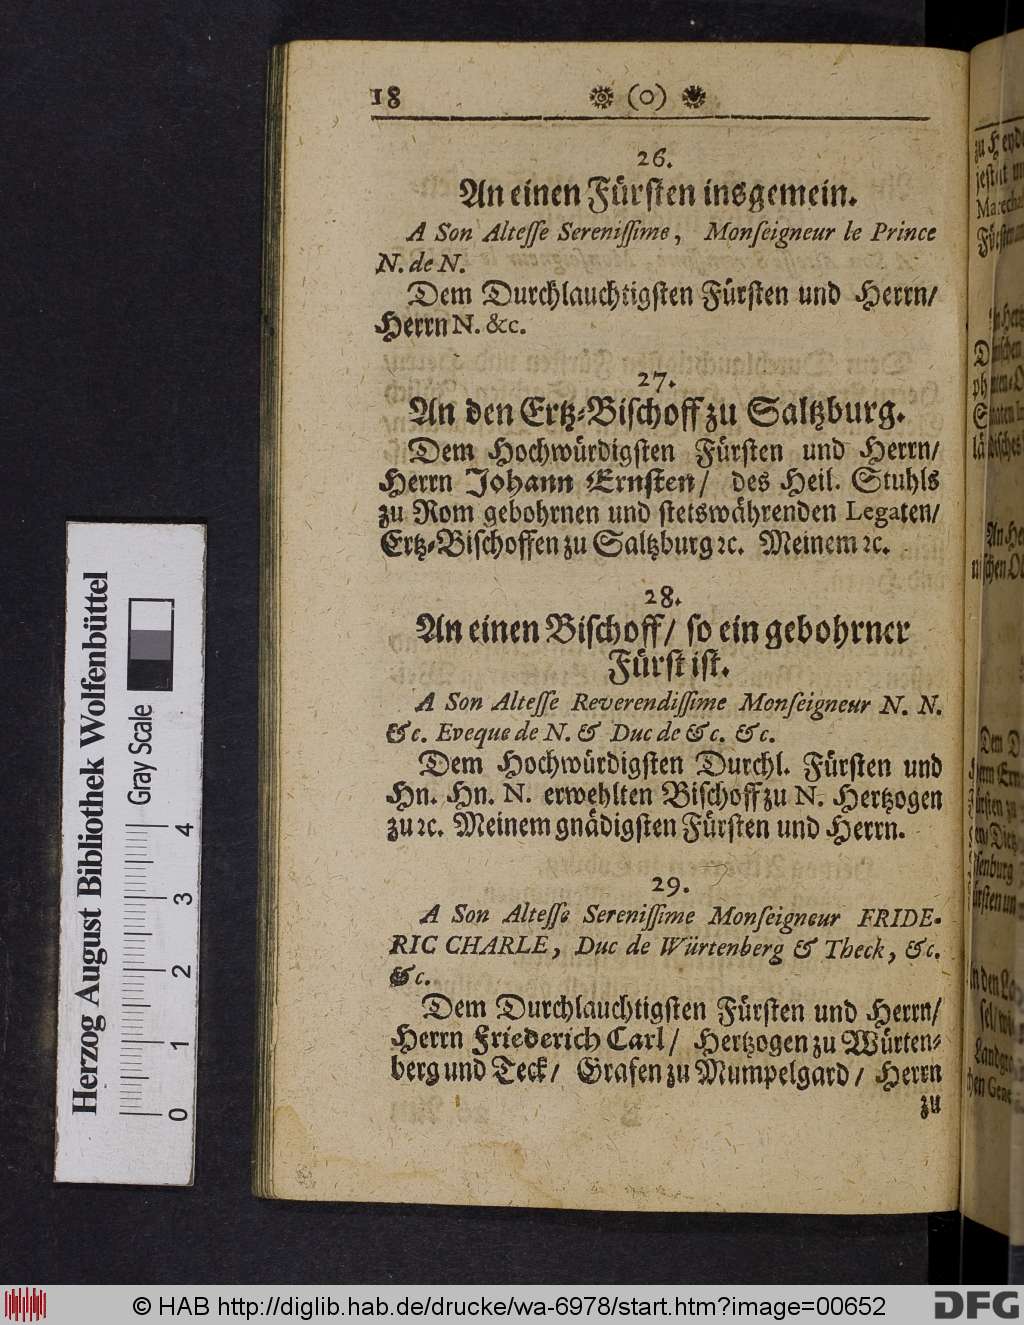 18 (o)
26.
An einen Fürsten insgemein.
A Son Altesse Serenissime, Monseigneur le Prince
N. de N.
Dem Durchlauchtigsten Fürsten und Herrn/
Herrn N. &c.
27.
An den Ertz-Bischoff zu Saltzburg.
Dem Hochwürdigsten Fürsten und Herrn/
Herrn Johann Ernsten/ des Heil. Stuhls
zu Rom gebohrnen und stetswährenden Legaten/
Ertz-Bischoffen zu Saltzburg ꝛc. Meinem ꝛc.
28.
An einen Bischoff/ so ein gebohrner
Fürst ist.
A Son Altesse Reverendissime Monseigneur N. N.
&c. Eveque de N. & Duc de &c. &c.
Dem Hochwürdigsten Durchl. Fürsten und
Hn. Hn. N. erwehlten Bischoff zu N. Hertzogen
zu ꝛc. Meinem gnädigsten Fürsten und Herrn.
29.
A Son Altesse Serenissime Monseigneur FRIDE-
RIC CHARLE, Duc de Würtenberg & Theck, &c.
&c.
Dem Durchlauchtigsten Fürsten und Herrn/
Herrn Friederich Carl/ Hertzogen zu Würten-
berg und Teck/ Grafen zu Mumpelgard/ Herrn
zu
Herzog August Bibliothek Wolfenbüttel
Gray Scale
0 1 2 3 4
© HAB http://diglib.hab.de/drucke/wa-6978/start.htm?image=00652
DFG